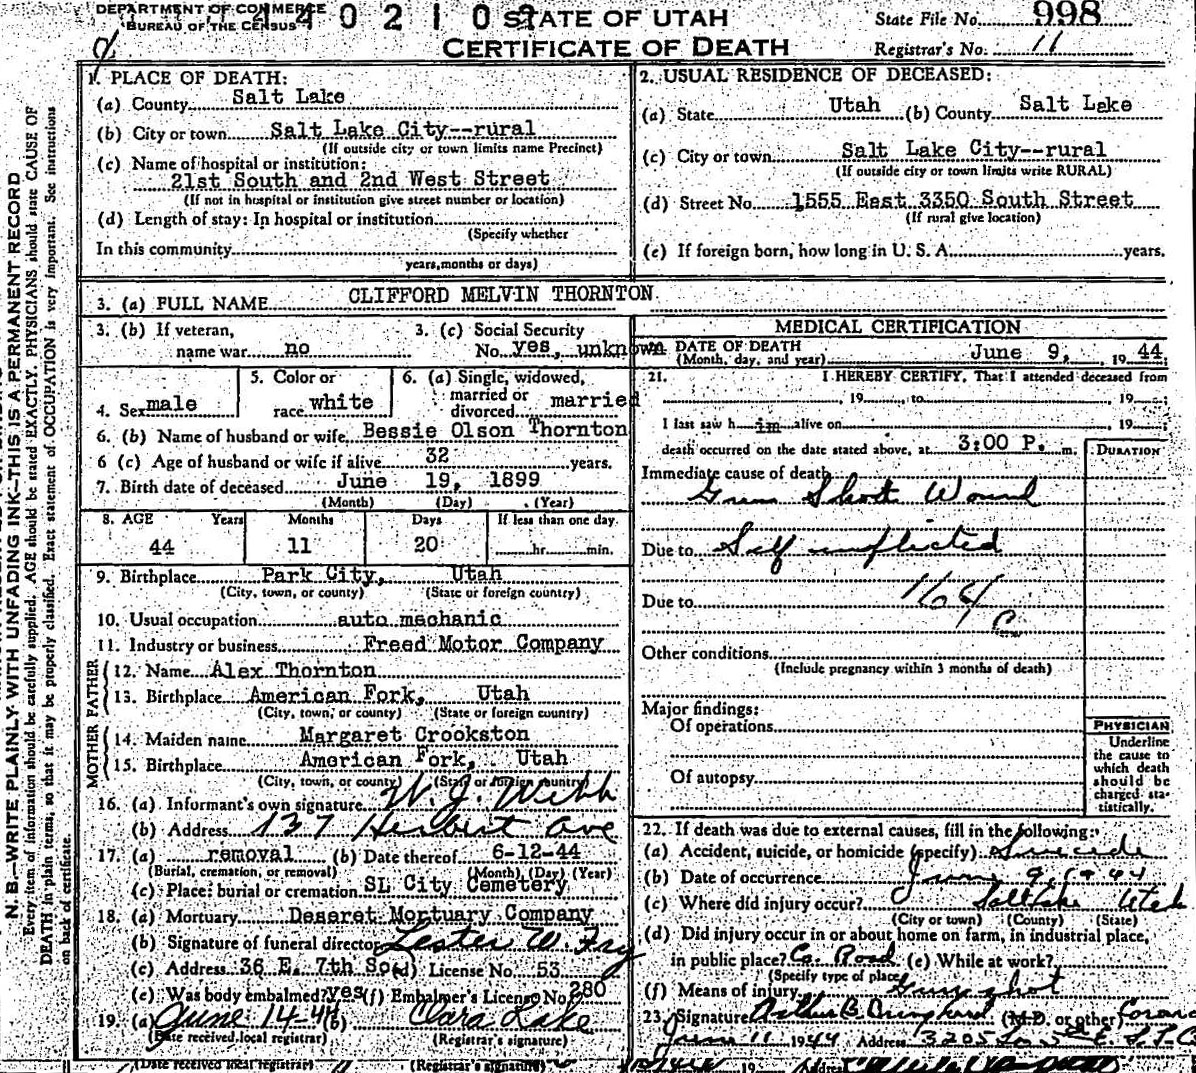 DEPARTMENT OF COMMERCE
BUREAU OF THE CENSUS
STATE OF UTAH
CERTIFICATE OF DEATH
State File No. 998
Registrar's No. 11
N. B.—WRITE PLAINLY WITH UNFADING INK—THIS IS A PERMANENT RECORD
Every item of information should be carefully supplied. AGE should be stated EXACTLY. PHYSICIANS should state CAUSE OF
DEATH in plain terms, so that it may be properly classified. Exact statement of OCCUPATION is very important. See instructions
on back of certificate.
1. PLACE OF DEATH:
(a) County Salt Lake
(b) City or town Salt Lake City--rural
(If outside city or town limits name Precinct)
(c) Name of hospital or institution:
21st South and 2nd West Street
(If not in hospital or institution give street number or location)
(d) Length of stay: In hospital or institution
(Specify whether
In this community
years, months or days)
2. USUAL RESIDENCE OF DECEASED:
(a) State Utah (b) County Salt Lake
(c) City or town Salt Lake City--rural
(If outside city or town limits write RURAL)
(d) Street No. 1555 East 3350 South Street
(If rural give location)
(e) If foreign born, how long in U. S. A. years.
3. (a) FULL NAME CLIFFORD MELVIN THORNTON
3. (b) If veteran,
name war no
3. (c) Social Security
No. yes, unknown
4. Sex male
5. Color or
race white
6. (a) Single, widowed,
married or
divorced married
6. (b) Name of husband or wife Bessie Olson Thornton
6 (c) Age of husband or wife if alive 32 years.
7. Birth date of deceased June 19, 1899
(Month) (Day) (Year)
8. AGE Years Months Days If less than one day
44 11 20 hr. min.
9. Birthplace Park City, Utah
(City, town, or county) (State or foreign country)
10. Usual occupation auto mechanic
11. Industry or business Freed Motor Company
FATHER
12. Name Alex Thornton
13. Birthplace American Fork, Utah
(City, town, or county) (State or foreign country)
MOTHER
14. Maiden name Margaret Crookston
15. Birthplace American Fork, Utah
(City, town, or county) (State or foreign country)
16. (a) Informant's own signature W. J. Webb
(b) Address 137 Herbert Ave
17. (a) removal (b) Date thereof 6-12-44
(Burial, cremation, or removal) (Month) (Day) (Year)
(c) Place: burial or cremation SL City Cemetery
18. (a) Mortuary Deseret Mortuary Company
(b) Signature of funeral director Lester W. Fry
(c) Address 36 E. 7th So. (d) License No. 53
(e) Was body embalmed? yes (f) Embalmer's License No. 280
19. (a) June 14-44 (b) Clara Lake
(Date received local registrar) (Registrar's signature)
(Date received local registrar) (Registrar's signature)
MEDICAL CERTIFICATION
20. DATE OF DEATH
(Month, day, and year) June 9, 1944
21. I HEREBY CERTIFY, That I attended deceased from
, 19 to , 19 ;
I last saw h im alive on , 19 ;
death occurred on the date stated above, at 3:00 P. m.
DURATION
Immediate cause of death
Gun Shot Wound
Due to Self inflicted
Due to 164
C
Other conditions
(Include pregnancy within 3 months of death)
Major findings:
Of operations
Of autopsy
PHYSICIAN
Underline
the cause to
which death
should be
charged sta-
tistically.
22. If death was due to external causes, fill in the following:
(a) Accident, suicide, or homicide (specify) Suicide
(b) Date of occurrence June 9, 1944
(c) Where did injury occur? Salt Lake Utah
(City or town) (County) (State)
(d) Did injury occur in or about home on farm, in industrial place,
in public place? Co. Road (e) While at work?
(Specify type of place)
(f) Means of injury Gunshot
23. Signature (M.D. or other)
June 11 1944 Address